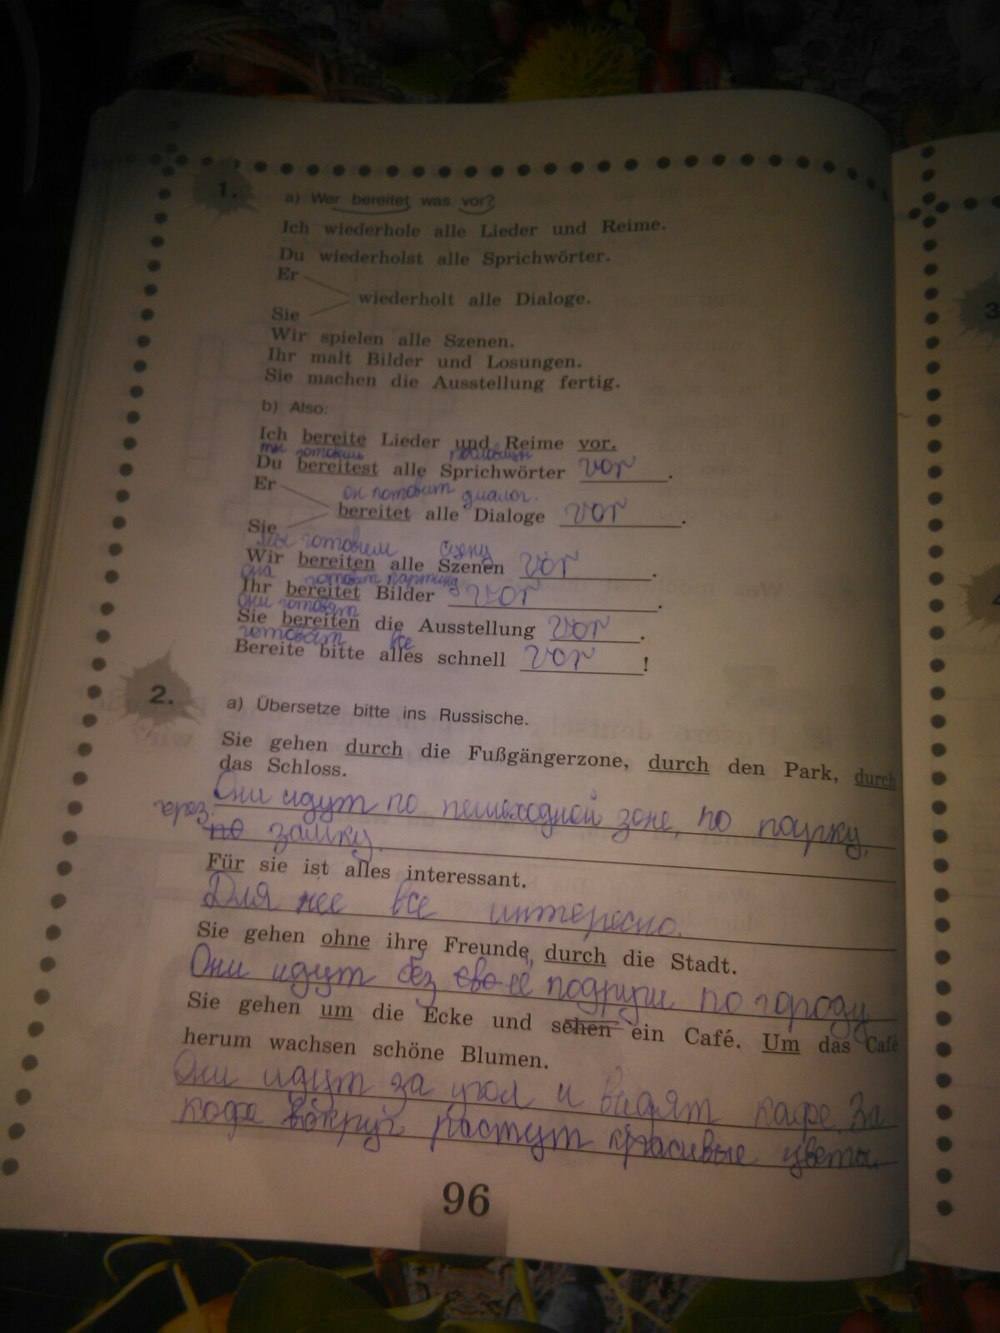 1.
a) Wer bereitet was vor?
Ich wiederhole alle Lieder und Reime.
Du wiederholst alle Sprichwörter.
Er
wiederholt alle Dialoge.
Sie
Wir spielen alle Szenen.
Ihr malt Bilder und Losungen.
Sie machen die Ausstellung fertig.
b) Also:
Ich bereite Lieder und Reime vor.
ты готовишь
Du bereitest alle Sprichwörter vor.
Er
он готовит диалог.
bereitet alle Dialoge vor.
Sie
Мы готовим сцену
Wir bereiten alle Szenen vor.
она готовит картину
Ihr bereitet Bilder vor.
они готовят
Sie bereiten die Ausstellung vor.
готовят все
Bereite bitte alles schnell vor!
2.
a) Übersetze bitte ins Russische.
Sie gehen durch die Fußgängerzone, durch den Park, durch
das Schloss.
Они идут по пешеходной зоне, по парку,
через по замку.
Für sie ist alles interessant.
Для нее все интересно.
Sie gehen ohne ihre Freunde, durch die Stadt.
Они идут без её подруги по городу
Sie gehen um die Ecke und sehen ein Café. Um das Café
herum wachsen schöne Blumen.
Они идут за угол и видят кафе. За
кафе вокруг растут красивые цветы
96
3
4